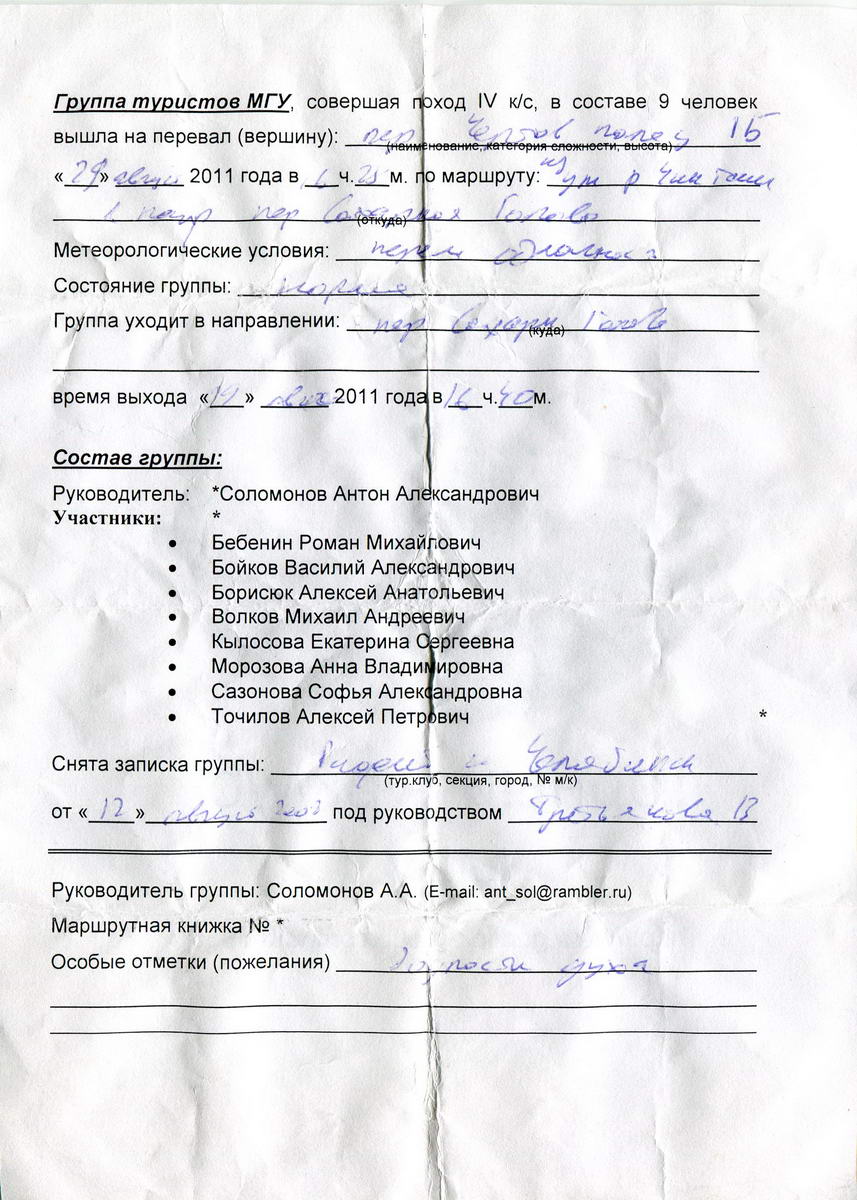 Группа туристов МГУ, совершая поход IV к/с, в составе 9 человек
вышла на перевал (вершину): пер Чертов палец 1Б
(наименование, категория сложности, высота)
« » август 2011 года в 6 ч. 25 м. по маршруту: из
пер Сахарная Голова
(откуда)
Метеорологические условия: перем облачност
Состояние группы: норма
Группа уходит в направлении: пер Сахарн Голова
(куда)
время выхода «19» 2011 года в 16 ч. 40 м.
Состав группы:
Руководитель: *Соломонов Антон Александрович
Участники: *
• Бебенин Роман Михайлович
• Бойков Василий Александрович
• Борисюк Алексей Анатольевич
• Волков Михаил Андреевич
• Кылосова Екатерина Сергеевна
• Морозова Анна Владимировна
• Сазонова Софья Александровна
• Точилов Алексей Петрович *
Снята записка группы: Челябинск
(тур.клуб, секция, город, № м/к)
от «12» август под руководством Третьякова В
Руководитель группы: Соломонов А.А. (E-mail: ant_sol@rambler.ru)
Маршрутная книжка № *
Особые отметки (пожелания) бодрости духа